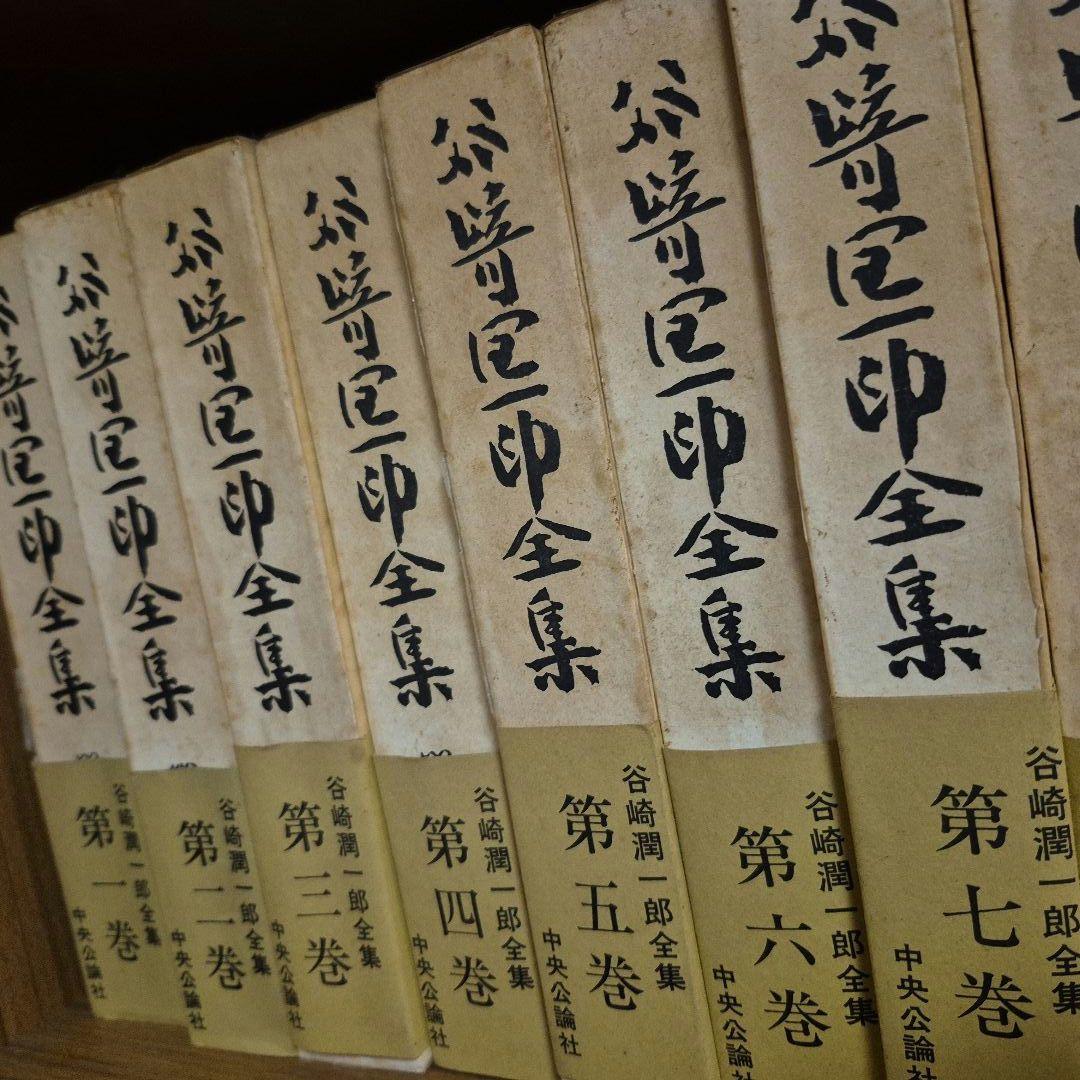 谷崎潤一郎全集
谷崎潤一郎全集
谷崎潤一郎全集
第一巻
中央公論社
谷崎潤一郎全集
谷崎潤一郎全集
第二巻
中央公論社
谷崎潤一郎全集
谷崎潤一郎全集
第三巻
中央公論社
谷崎潤一郎全集
谷崎潤一郎全集
第四巻
中央公論社
谷崎潤一郎全集
谷崎潤一郎全集
第五巻
中央公論社
谷崎潤一郎全集
谷崎潤一郎全集
第六巻
中央公論社
谷崎潤一郎全集
谷崎潤一郎全集
第七巻
中央公論社